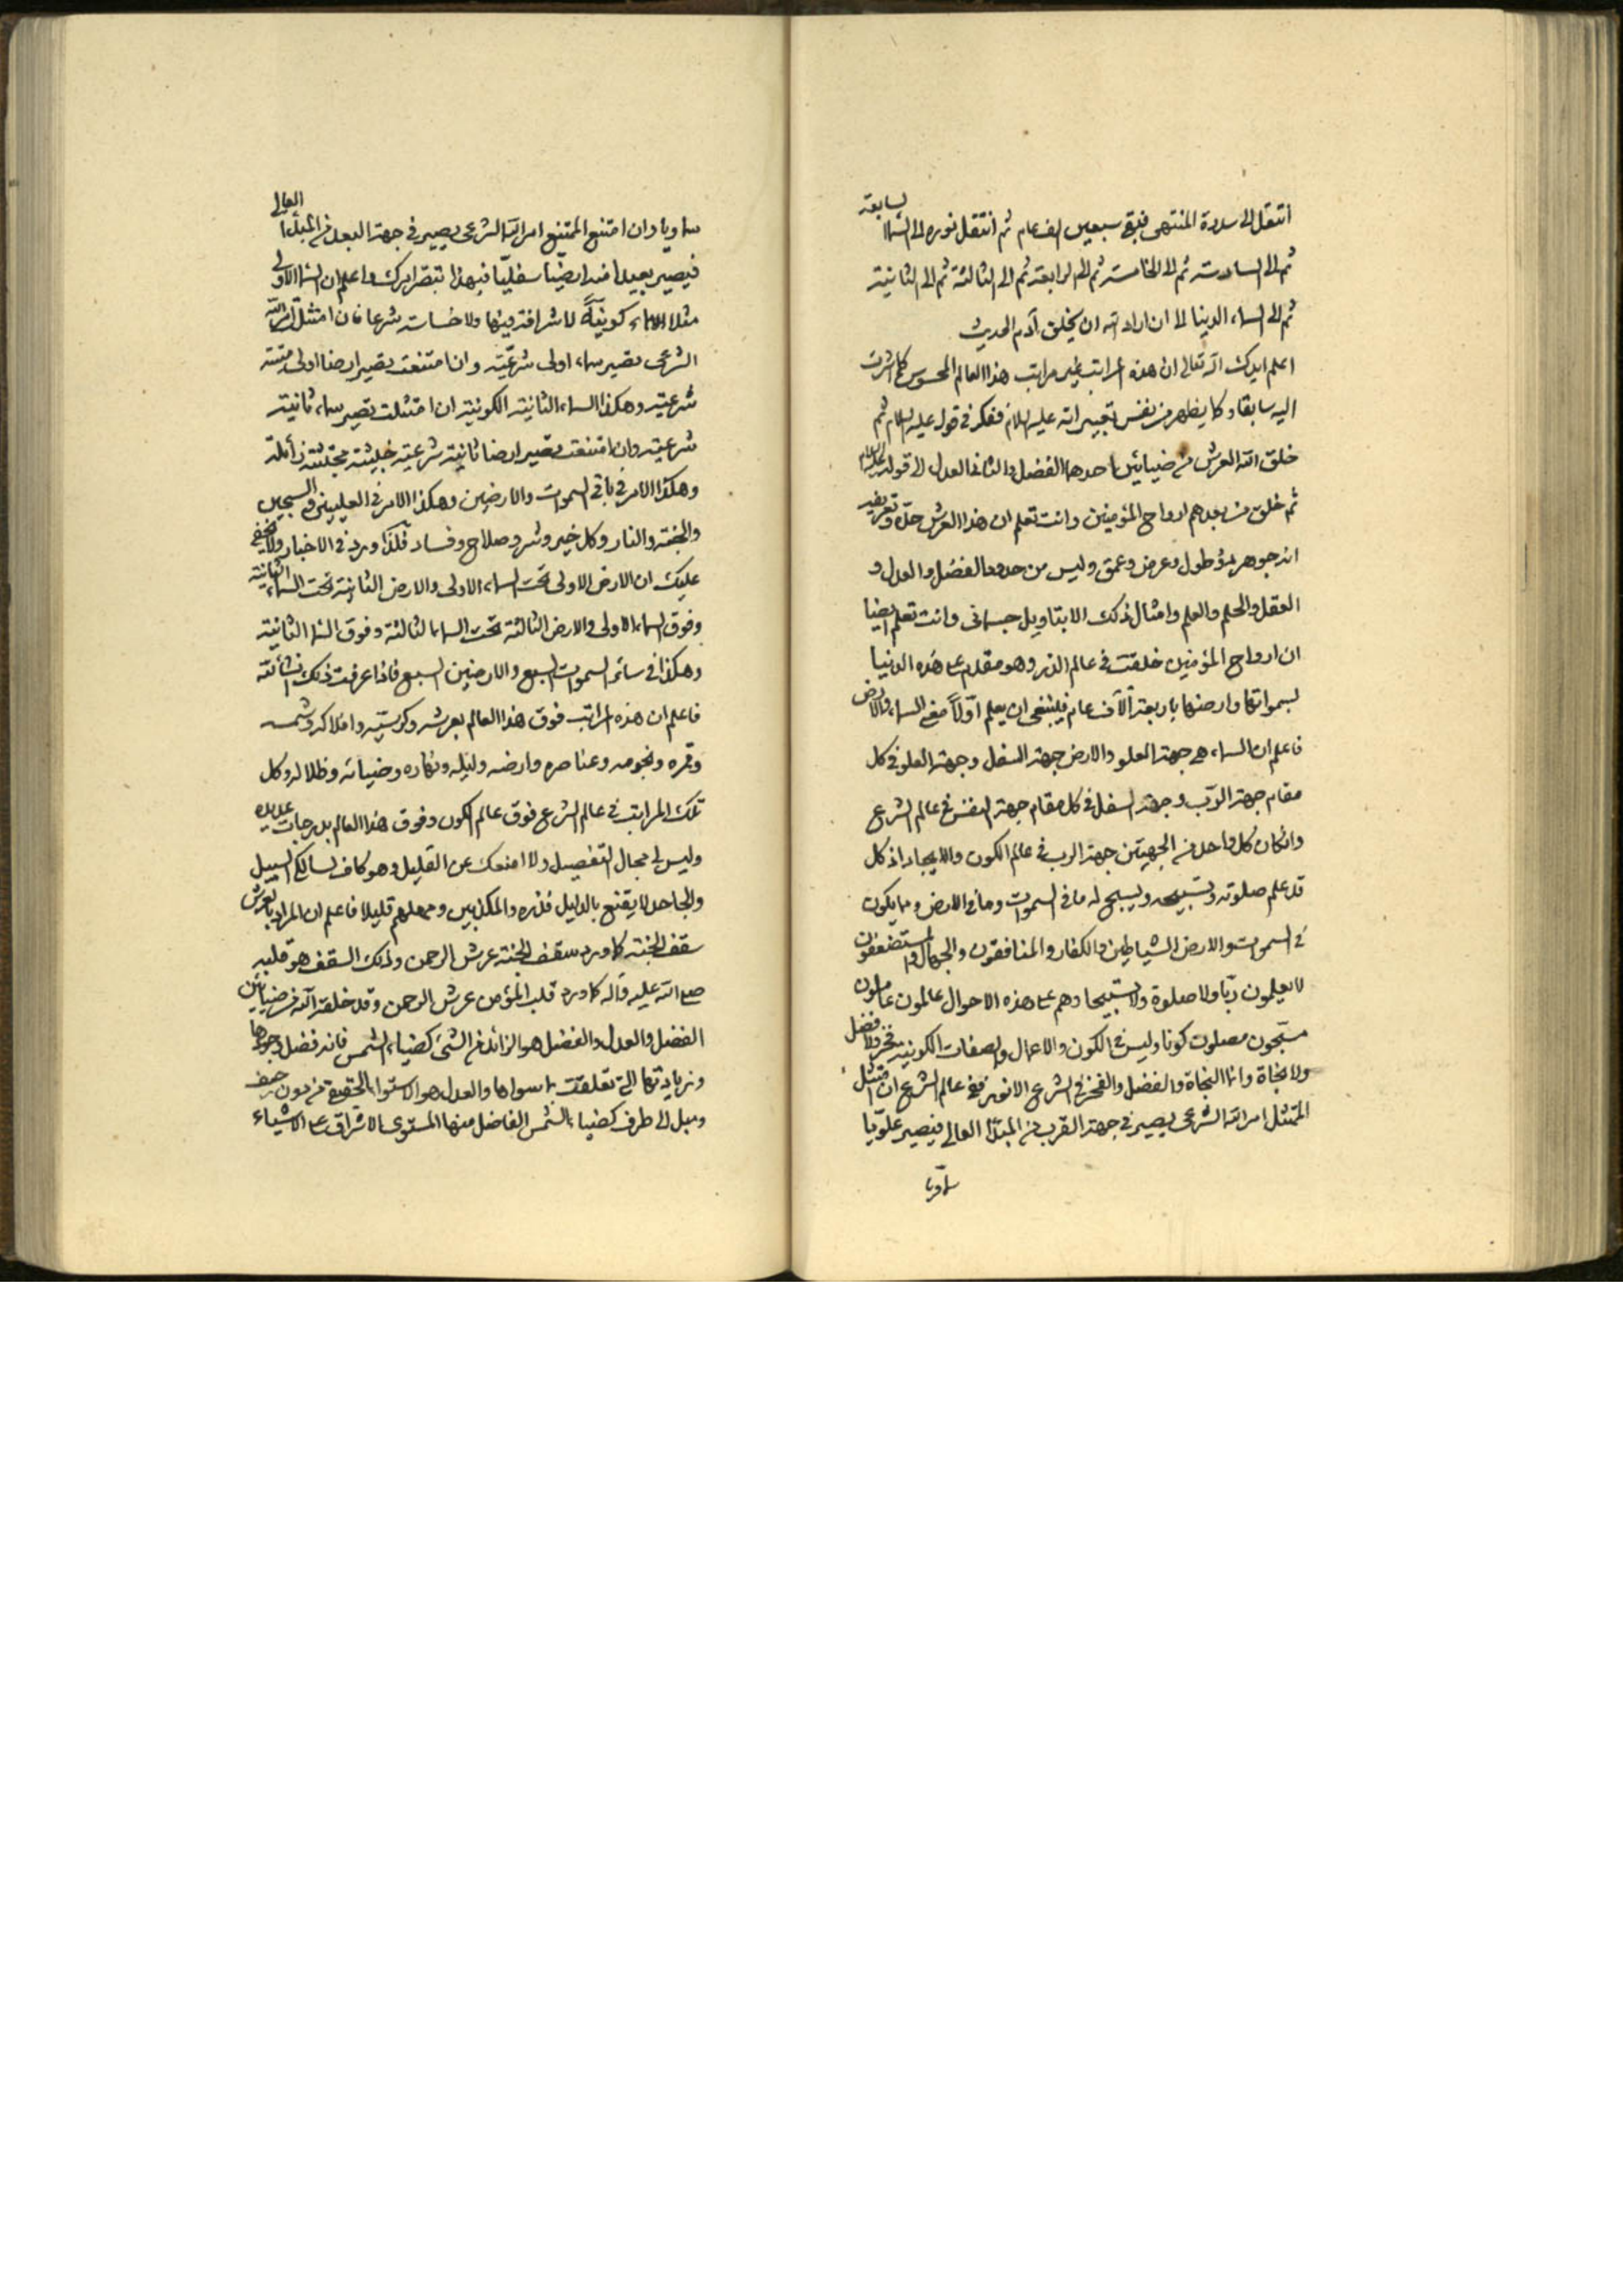 انتقل الى سدرة المنتهى فبقى سبعين الف عام ثم انتقل نوره الى السماء السابعة
ثم الى السادسة ثم الى الخامسة ثم الى الرابعة ثم الى الثالثة ثم الى الثانية
ثم الى السماء الدنيا الى ان اراد الله ان يخلق آدم الحديث
اعلم ايدك الله تعالى ان هذه المراتب غير مراتب هذا العالم المحسوس كما اشرت
اليه سابقا وكما يظهر من نفس تعبيراته عليه السلام ففكر فى قوله عليه السلام ثم
خلق الله العرش من ضيائين احدهما الفضل والثانى العدل الى قوله عليه السلام
ثم خلق من بعدهم ارواح المؤمنين وانت تعلم ان هذا العرش حده وتعريفه
انه جوهر ذو طول وعرض وعمق وليس من حدود الفضل والعدل و
العقل والحلم والعلم وامثال ذلك الا بتاويل جسمانى وانت تعلم ايضا
ان ارواح المؤمنين خلقت فى عالم الذر وهو مقدم على هذه الدنيا
بسمواتها وارضها باربعة آلاف عام فينبغى ان يعلم اولا معنى السماء والارض
فاعلم ان السماء هى جهة العلو والارض جهة السفل وجهة العلو فى كل
مقام جهة الرب وجهة السفل فى كل مقام جهة النفس فى عالم الشرع
وانكان كل واحد من الجهتين جهة الرب فى عالم الكون والايجاد اذ كل
قد علم صلوته وتسبيحه ويسبح له ما فى السموات وما فى الارض وما يكون
فى السموات والارض الشياطين والكفار والمنافقون والجهال والمستضعفون
لا يعلمون ربا ولا صلوة ولا تسبيحا وهم على هذه الاحوال عالمون عاملون
مسبحون مصلون كونا وليس فى الكون والاعمال والصفات الكونية فخر ولا فضل
ولا نجاة وانما النجاة والفضل والفخر فى الشرع الانور ففى عالم الشرع ان امتثل
الممتثل امر الله الشرعى يصير فى جهة القرب من المبدأ العالى فيصير علويا
سماويا
سماويا وان امتنع الممتنع امر الله الشرعى يصير فى جهة البعد من المبدأ العالى
فيصير بعيدا منه ارضيا سفليا فبهذا تبصر امرك واعلم ان السماء الاولى
مثلا كونية لا شرافة فيها ولا خساسة شرعا فان امتثل امر الله
الشرعى تصير سماء اولى شرعية وان امتنعت تصير ارضا اولى ميتة
شرعية وهكذا السماء الثانية الكونية ان امتثلت تصير سماء ثانية
شرعية وان امتنعت تصير ارضا ثانية شرعية خبيثة مجتثة زائلة
وهكذا الامر فى باقى السموات والارضين وهكذا الامر فى العليين والسجين
والجنة والنار وكل خير وشر وصلاح وفساد فلذا ورد فى الاخبار ولا يخفى
عليك ان الارض الاولى تحت السماء الاولى والارض الثانية تحت السماء الثانية
وفوق السماء الاولى والارض الثالثة تحت السماء الثالثة وفوق السماء الثانية
وهكذا فى سائر السموات السبع والارضين السبع فاذا عرفت ذلك انشاء الله
فاعلم ان هذه المراتب فوق هذا العالم بعرشه وكرسيه وافلاكه وشمسه
وقمره ونجومه وعناصره وارضه وليله ونهاره وضيائه وظلاله وكل
تلك المراتب فى عالم الشرع فوق عالم الكون وفوق هذا العالم بدرجات عديدة
وليس لى مجال التفصيل ولا امنعك عن القليل وهو كاف لسالك السبيل
والجاحد لا يقنع بالدليل فذره والمكذبين ومهلهم قليلا فاعلم ان المراد بالعرش
سقف الجنة كما ورد سقف الجنة عرش الرحمن وذلك السقف هو قلبه
صلى الله عليه وآله كما ورد قلب المؤمن عرش الرحمن وقد خلقه الله من ضيائين
الفضل والعدل والفضل هو الزائد من الشئ كضياء الشمس فانه فضل وجودها
وزيادتها التى تعلقت بما سواها والعدل هو الاستواء الحقيقى من دون حيف
وميل الى طرف كضياء الشمس الفاضل منها المستوى الاشراق على الاشياء